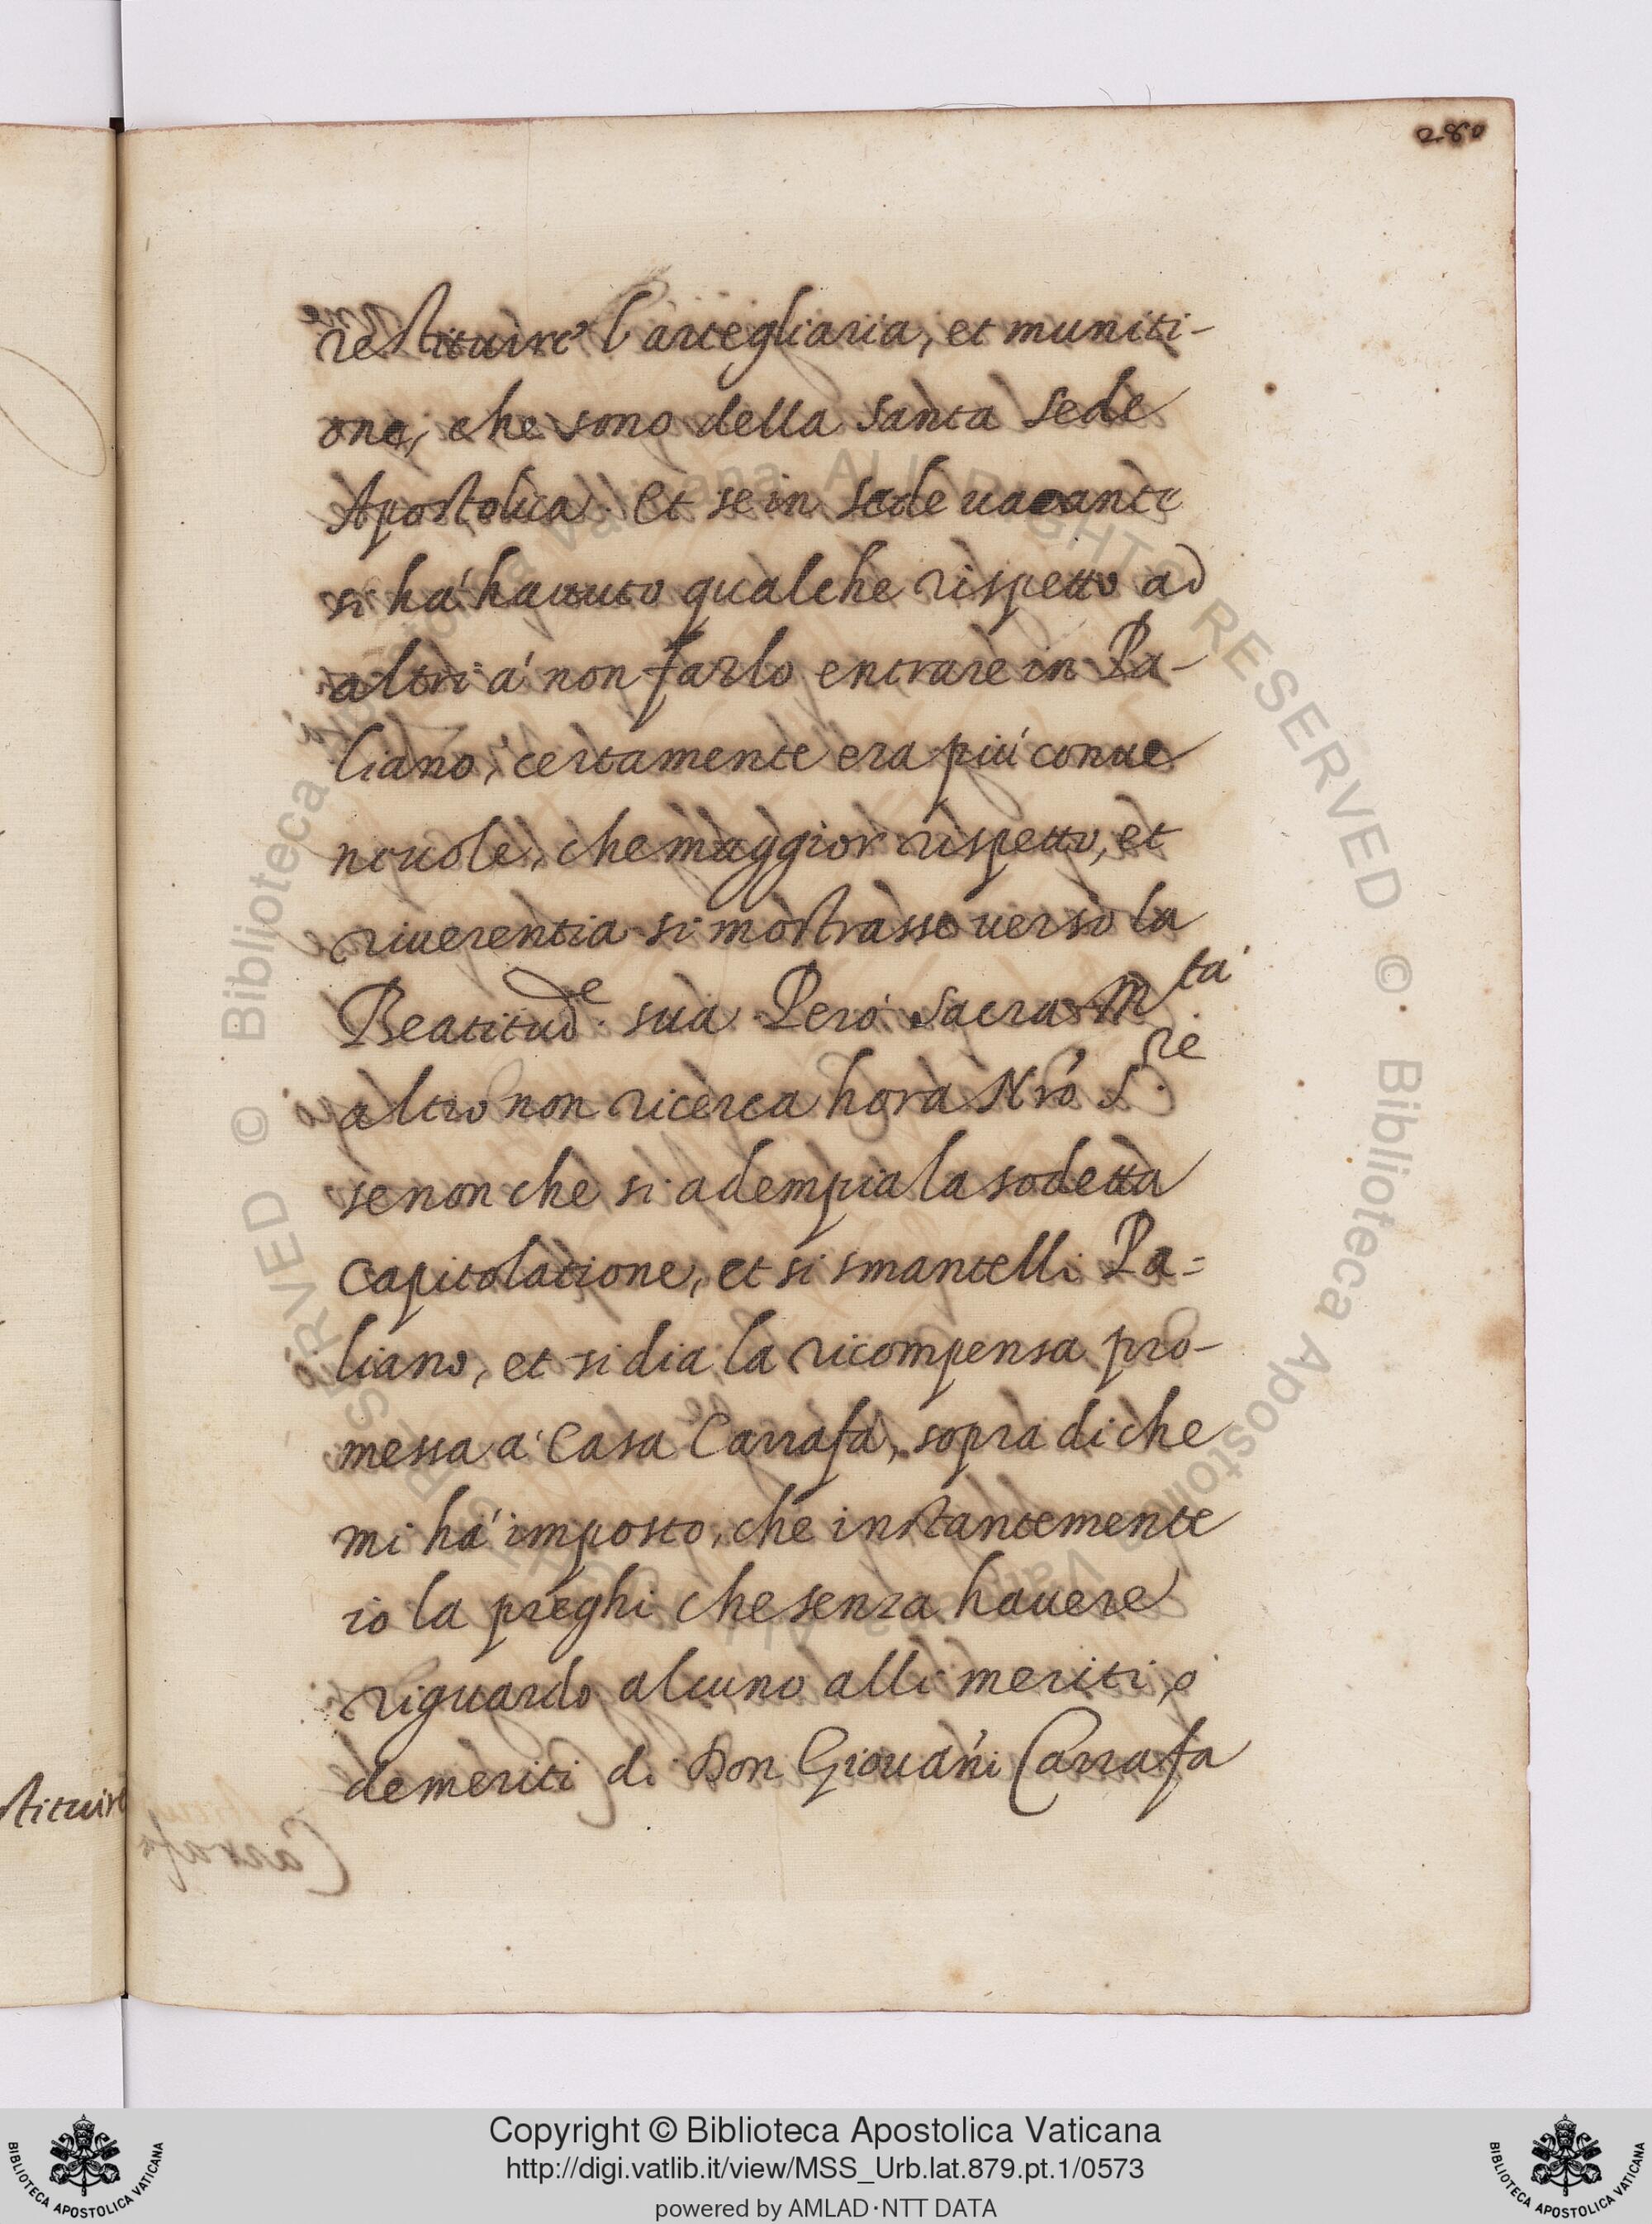 280
restituire l'artegliaria, et muniti-
one, che sono della santa sede
Apostolica. Et se in sede uacante
si há hauuto qualche rispetto ad
altri á non farlo entrare in Pa-
liano, certamente era piú conue
neuole, che maggior rispetto, et
riuerentia si mostrasse uerso la
Beatitud.e sua. Peró Sacra M.tá
altro non ricerca hora Nró S.re
se non che si adempia la sodetta
capitolatione, et si smantelli Pa=
liano, et si dia la ricompensa pro-
messa á Casa Carrafa, sopra di che
mi há imposto, che instantemente
io la preghi che senza hauere
riguardo alcuno alli meriti, ó
demeriti di Don Giouáni Carrafa
stituire
© Biblioteca Apostolica Vaticana ALL RIGHTS RESERVED © Biblioteca Apostolica Vaticana ALL RIGHTS RESERVED
Copyright © Biblioteca Apostolica Vaticana
http://digi.vatlib.it/view/MSS_Urb.lat.879.pt.1/0573
powered by AMLAD·NTT DATA
BIBLIOTECA APOSTOLICA VATICANA
BIBLIOTECA APOSTOLICA VATICANA